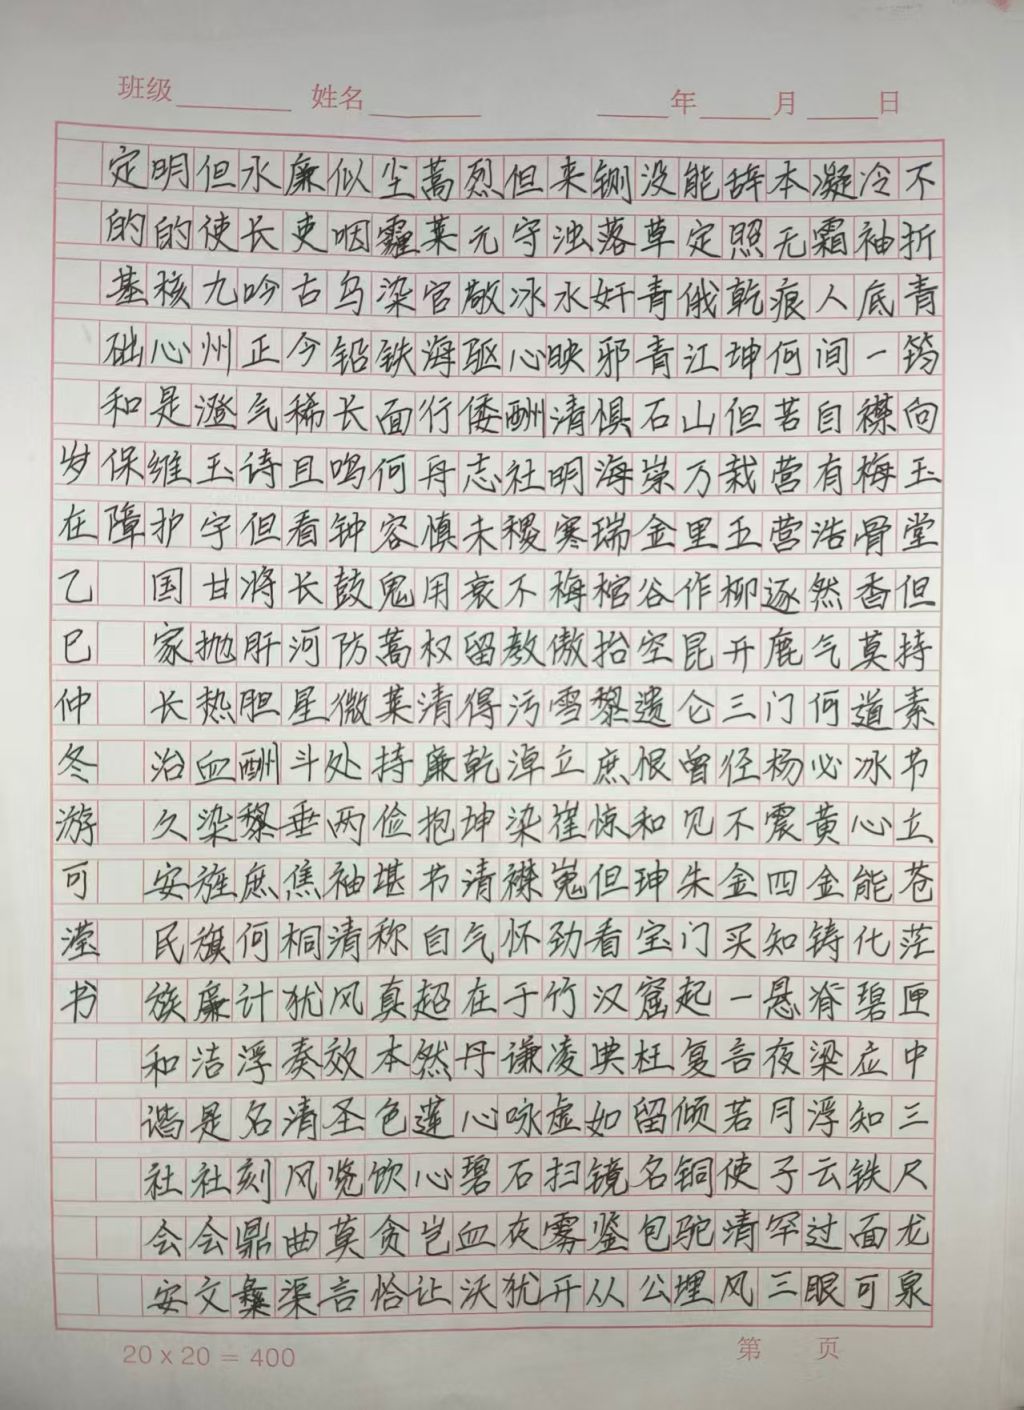 不折青筠向玉堂但持素节立苍茫匣中三尺龙泉
冷袖底一襟梅骨香莫道冰心能化碧应知铁面可
凝霜人间自有浩然气何必黄金铸脊梁浮云过眼
本无痕何苦营营逐鹿门杨震四知悬夜月子罕三
辞照乾坤但栽五柳开三径不金买一言若使清风
能定俄江山万里作昆仑曾见朱门起复倾铜驼埋
没草青青石崇金谷空遗恨和珅宝窟枉留名包公
铡落奸邪惧海瑞棺抬黎庶惊但看汉典如镜鉴从
来浊水映清明寒梅傲雪立崖嵬劲竹凌虚扫雾开
但守冰心酬社稷不教污淖染襟怀于谦咏石灰犹
烈元敞驱倭志未衰留得乾坤清气在丹心碧血沃
蒿莱官海行丹慎用权清廉抱书自超然莲心岂让
尘霾染铁面何容鬼蒿莱持俭堪称真本色饮贪恰
似咽乌铅长鸣钟鼓防微处两袖清风效圣览莫言
廉吏古今稀且看长河星斗垂焦桐犹奏清风曲渠
永长吟正气诗但将肝胆酬黎庶何计浮名刻鼎彝
但使九州澄玉宇甘抛热血染旌旗廉洁是社会文
明的核心是维护国家长治久安民族和谐社会安
定的基础和保障
岁在乙巳仲冬游可滢书
班级 姓名 年 月 日
20 x 20 = 400
第 页